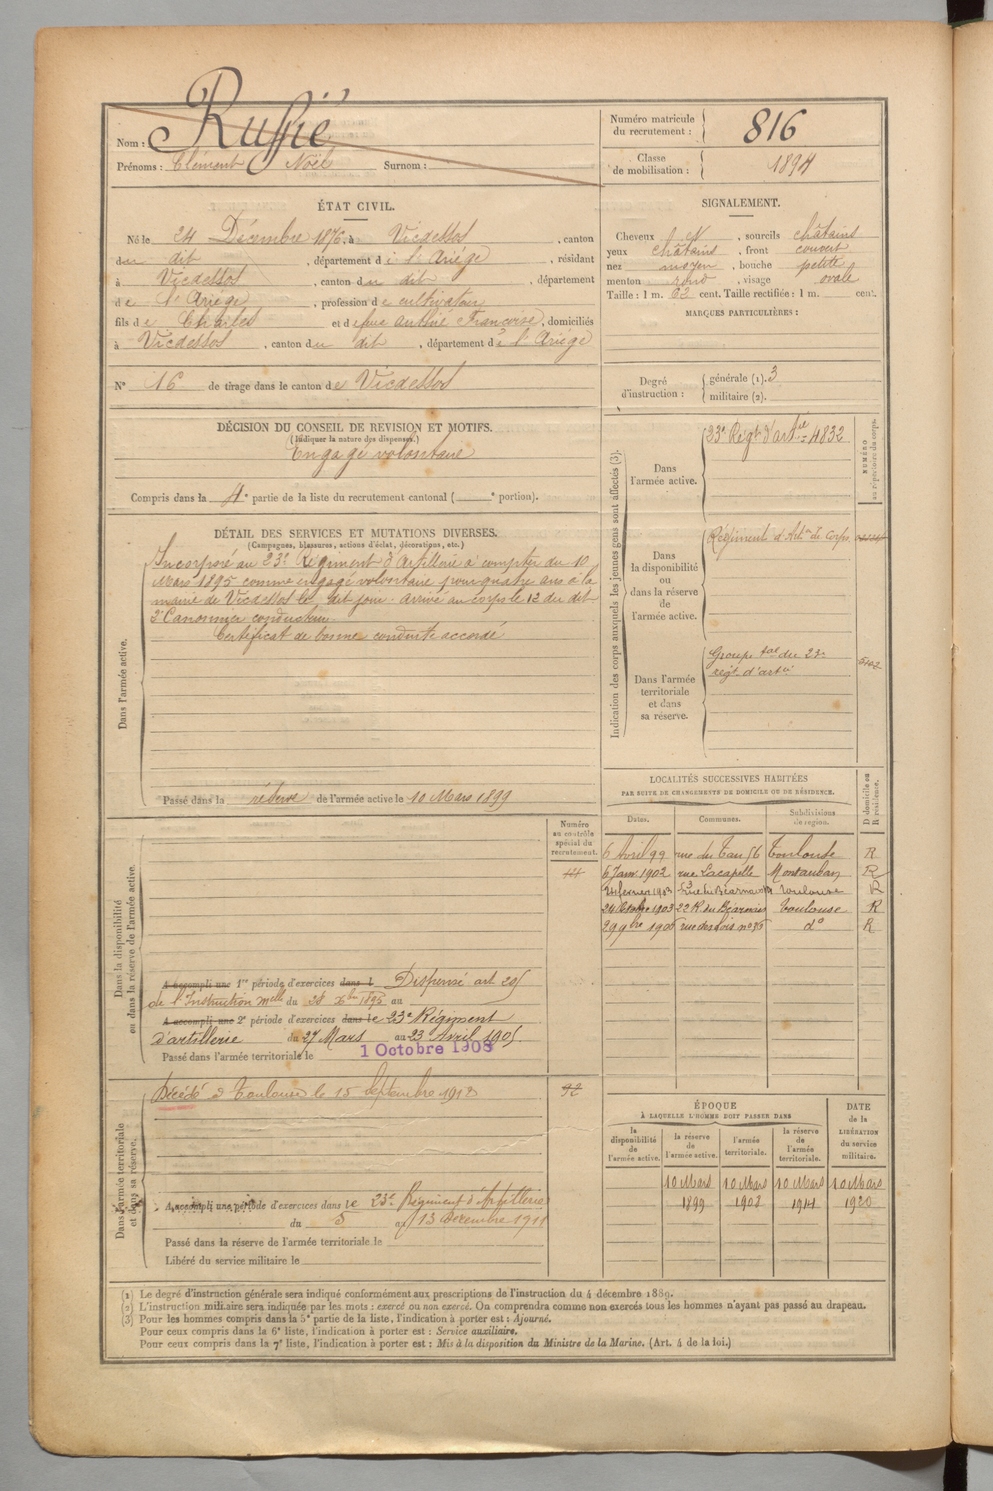 Nom : Ruffié
Prénoms : Clément Noël Surnom :
Numéro matricule du recrutement : 816
Classe de mobilisation : 1894
ÉTAT CIVIL.
Né le 24 Décembre 1876, à Vicdessos, canton
du dit, département de l'Ariège, résidant
à Vicdessos, canton du dit, département
de l'Ariège, profession de cultivateur
fils de Charles et de feue Françoise, domiciliés
à Vicdessos, canton du dit, département de l'Ariège
N° 16 de tirage dans le canton de Vicdessos
SIGNALEMENT.
Cheveux, sourcils châtains
yeux châtains, front couvert
nez moyen, bouche petite
menton rond, visage ovale
Taille : 1 m. 63 cent. Taille rectifiée : 1 m. cent.
MARQUES PARTICULIÈRES :
Degré d'instruction : générale (1). 3
militaire (2).
DÉCISION DU CONSEIL DE REVISION ET MOTIFS.
(Indiquer la nature des dispenses.)
Engagé volontaire
Compris dans la 4e partie de la liste du recrutement cantonal ( e portion).
DÉTAIL DES SERVICES ET MUTATIONS DIVERSES.
(Campagnes, blessures, actions d'éclat, décorations, etc.)
Dans l'armée active.
Incorporé au 23e Régiment d'artillerie à compter du 10
Mars 1895 comme engagé volontaire pour quatre ans à la
mairie de Vicdessos le dit jour. arrivé au corps le 12 du dit
2e Canonnier conducteur
Certificat de bonne conduite accordé
Passé dans la réserve de l'armée active le 10 Mars 1899
Indication des corps auxquels les jeunes gens sont affectés (3).
NUMÉRO au répertoire du corps.
Dans l'armée active.
23e Régt d'artie 4832
Dans la disponibilité ou dans la réserve de l'armée active.
Régiment d'Artie de Corps
Dans l'armée territoriale et dans sa réserve.
Groupe tal du 23e
régt d'artie
LOCALITÉS SUCCESSIVES HABITÉES
PAR SUITE DE CHANGEMENTS DE DOMICILE OU DE RÉSIDENCE.
Dates. Communes. Subdivisions de région. D domicile ou R résidence.
6 Avril 99 rue du Taur 56 Toulouse R
6 Janv. 1902 rue Lacapelle Montauban R
24 fevrier 1903 Toulouse R
24 Octobre 1903 22 R du Béarnais Toulouse R
rue des lois do R
Numéro au contrôle spécial du recrutement.
Dans la disponibilité ou dans la réserve de l'armée active.
A accompli une 1re période d'exercices dans l Dispensé art 20
de l'Instruction melle du 28 Xbre 1895 au
A accompli une 2e période d'exercices dans le 23e Régiment
d'artillerie du 27 Mars au 23 Avril 1905.
Passé dans l'armée territoriale le 1 Octobre 1908
Dans l'armée territoriale et dans sa réserve.
Décédé à Toulouse le 15 Septembre 1918
A accompli une période d'exercices dans le 23e Régiment d'Artillerie
du 5 au 13 décembre 1911
Passé dans la réserve de l'armée territoriale le
Libéré du service militaire le
ÉPOQUE
À LAQUELLE L'HOMME DOIT PASSER DANS
DATE de la LIBÉRATION du service militaire.
la disponibilité de l'armée active. la réserve de l'armée active. l'armée territoriale. la réserve de l'armée territoriale.
10 Mars 10 Mars 10 Mars 10 Mars
1899 1908 1914 1920
(1) Le degré d'instruction générale sera indiqué conformément aux prescriptions de l'instruction du 4 décembre 1889.
(2) L'instruction militaire sera indiquée par les mots : exercé ou non exercé. On comprendra comme non exercés tous les hommes n'ayant pas passé au drapeau.
(3) Pour les hommes compris dans la 5e partie de la liste, l'indication à porter est : Ajourné.
Pour ceux compris dans la 6e liste, l'indication à porter est : Service auxiliaire.
Pour ceux compris dans la 7e liste, l'indication à porter est : Mis à la disposition du Ministre de la Marine. (Art. 4 de la loi.)